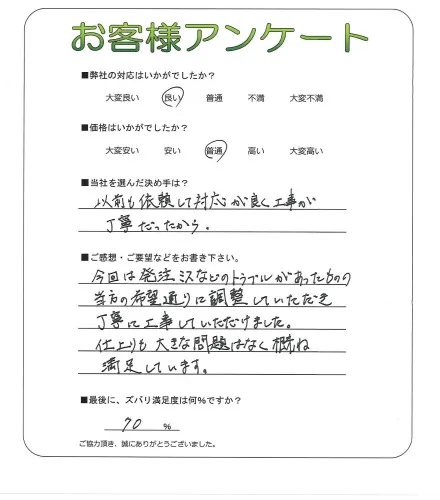 お客様アンケート
■弊社の対応はいかがでしたか？
大変良い 良い 普通 不満 大変不満
■価格はいかがでしたか？
大変安い 安い 普通 高い 大変高い
■当社を選んだ決め手は？
以前も依頼して対応が良く工事が
丁寧だったから。
■ご感想・ご要望などをお書き下さい。
今回は発注ミスなどのトラブルがあったものの
当方の希望通りに調整していただき
丁寧に工事していただけました。
仕上りも大きな問題はなく概ね
満足しています。
■最後に、ズバリ満足度は何%ですか？
70 %
ご協力頂き、誠にありがとうございました。